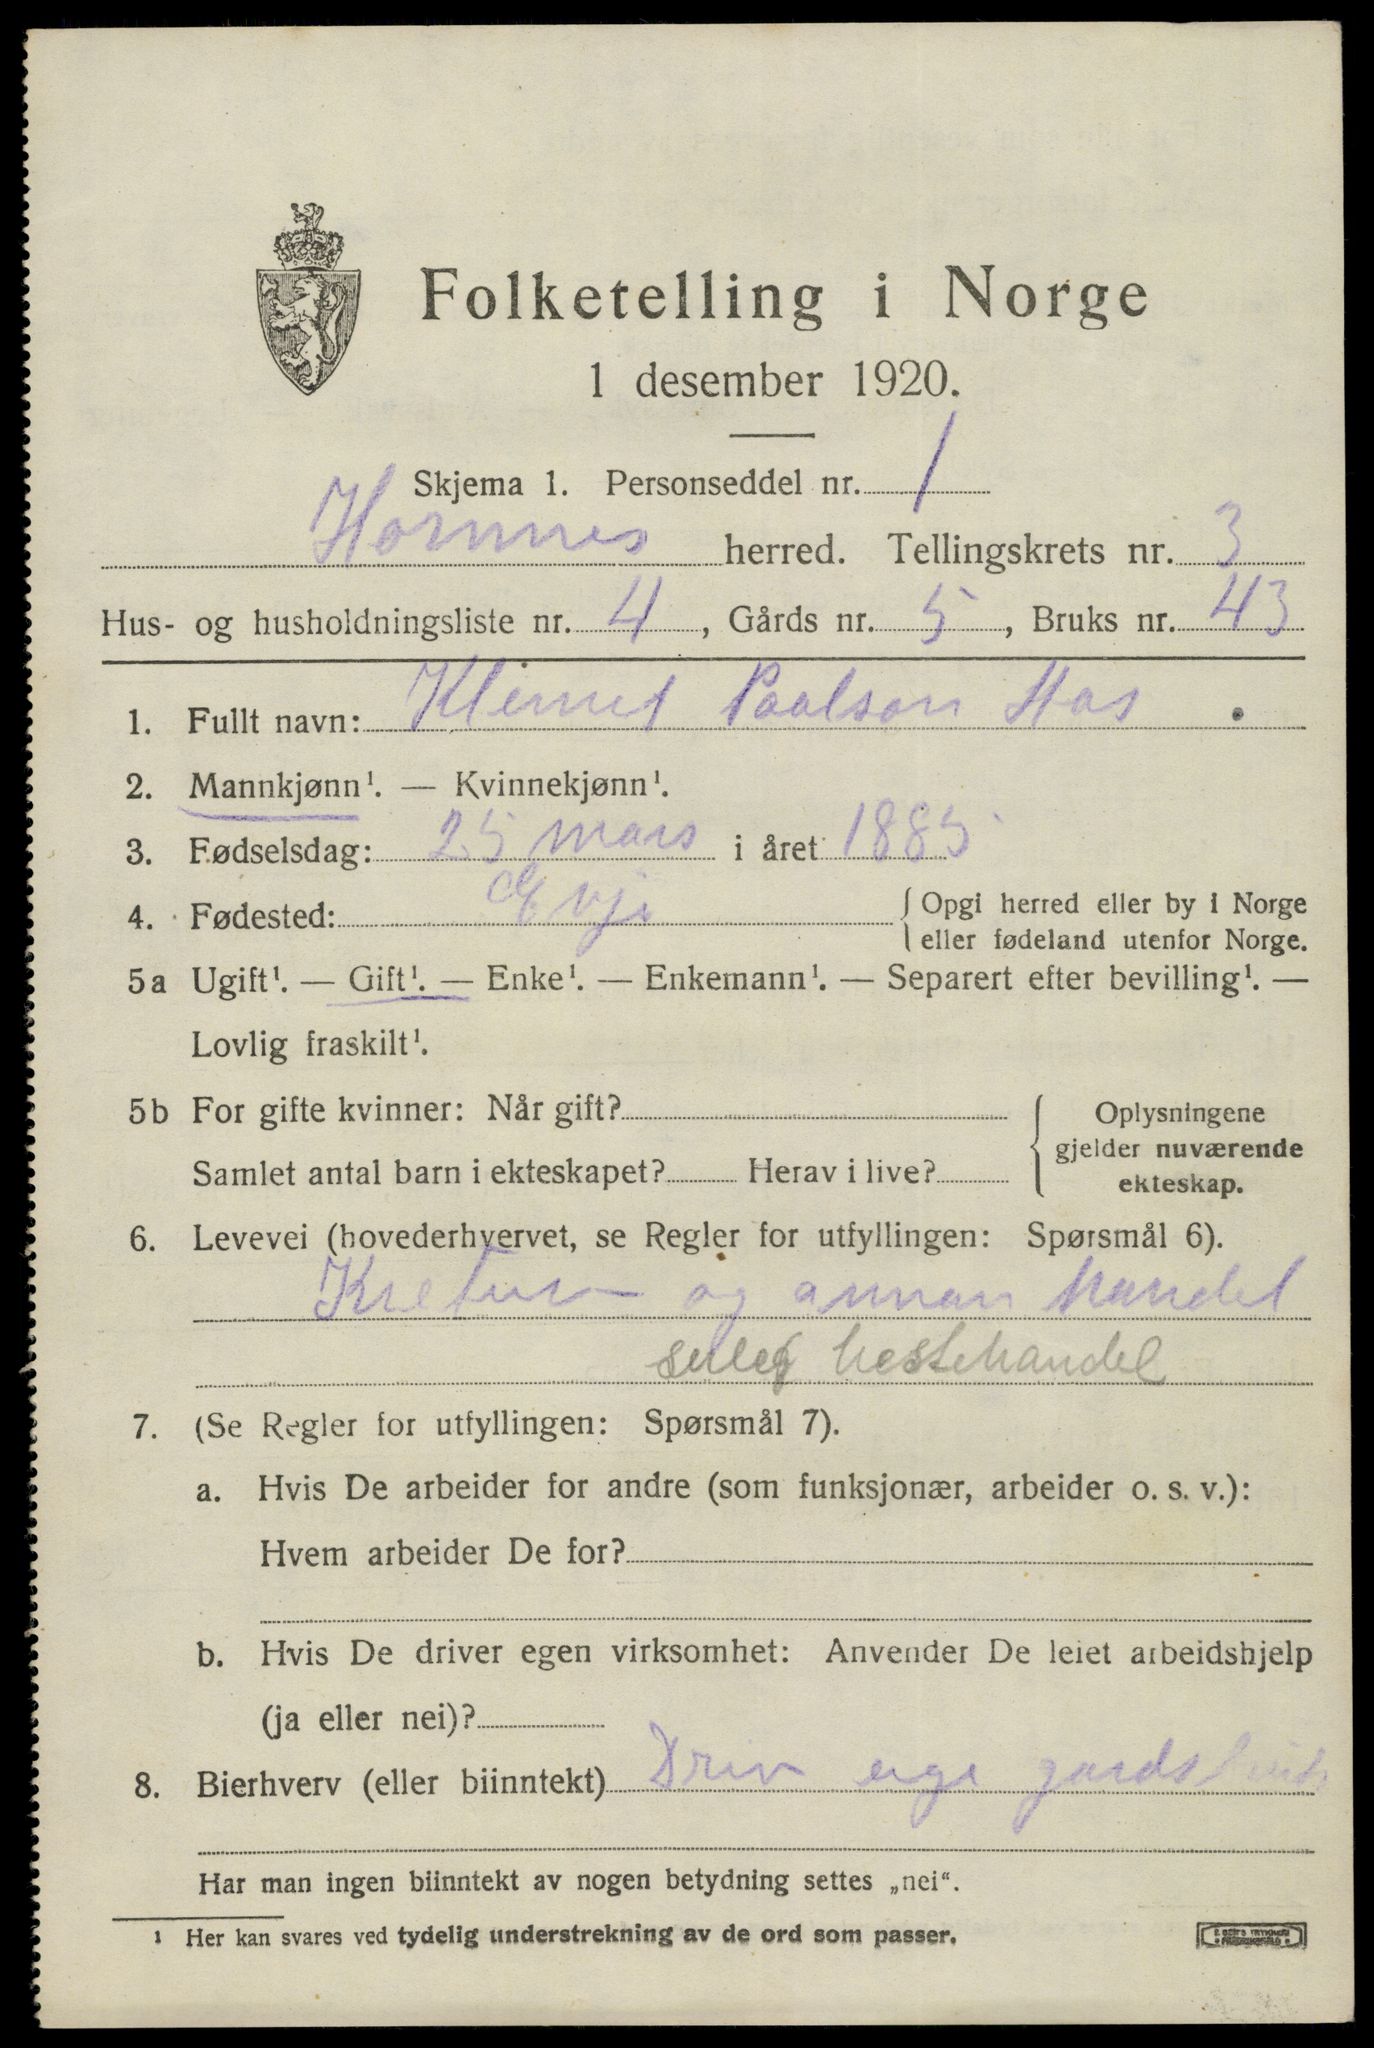 Folketelling i Norge
1 desember 1920.
Skjema 1. Personseddel nr. 1
Hornnes herred. Tellingskrets nr. 3
Hus- og husholdningsliste nr. 4, Gårds nr. 5, Bruks nr. 43
1. Fullt navn: Klemet Paalson Aas .
2. Mannkjønn¹. — Kvinnekjønn¹.
3. Fødselsdag: 25 mars i året 1885
4. Fødested: Evje { Opgi herred eller by i Norge
eller fødeland utenfor Norge.
5a Ugift¹. — Gift¹. — Enke¹. — Enkemann¹. — Separert efter bevilling¹. —
Lovlig fraskilt¹.
5b For gifte kvinner: Når gift? { Oplysningene
gjelder nuværende
Samlet antal barn i ekteskapet? Herav i live?
ekteskap.
6. Levevei (hovederhvervet, se Regler for utfyllingen: Spørsmål 6).
Kretur og annan handel
hestehandel
7. (Se Regler for utfyllingen: Spørsmål 7).
a. Hvis De arbeider for andre (som funksjonær, arbeider o. s. v.):
Hvem arbeider De for?
b. Hvis De driver egen virksomhet: Anvender De leiet arbeidshjelp
(ja eller nei)?
8. Bierhverv (eller biinntekt) Driv eige gardsbruk
Har man ingen biinntekt av nogen betydning settes „nei“.
¹ Her kan svares ved tydelig understrekning av de ord som passer.